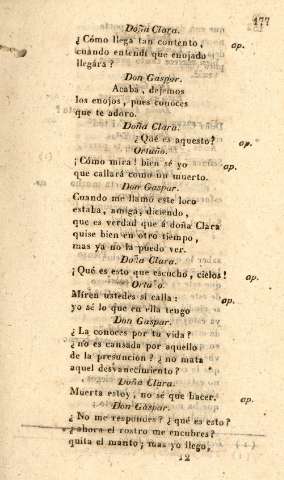 177
Doña Clara.
¿Cómo llega tan contento, ap.
cuando entendí que enojado
llegára?
Don Gaspar.
Acaba, dejemos
los enojos, pues conoces
que te adoro.
Doña Clara.
¿Qué es aquesto? ap.
Ortuño.
¡Cómo mira! bien sé yo ap.
que callará como un muerto.
Don Gaspar.
Cuando me llamó este loco
estaba, amiga, diciendo,
que es verdad que á doña Clara
quise bien en otro tiempo,
mas ya no la puedo ver.
Doña Clara.
¡Qué es esto que escucho, cielos! ap.
Ortuño.
Miren ustedes si calla: ap.
yo sé lo que en ella tengo
Don Gaspar.
¿La conoces por tu vida?
¿no es cansada por aquello
de la presuncion? ¿no mata
aquel desvanecimiento?
Doña Clara.
Muerta estoy, no sé que hacer. ap.
Don Gaspar.
¿No me respondes? ¿qué es esto?
¿ahora el rostro me encubres?
quita el manto; mas yo llego,
12